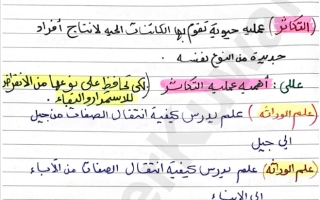 (التكاثر) عملية حيوية تقوم بها الكائنات الحيه لانتاج أفراد
جديدة من النوع نفسه
عللي: أهمية عملية التكاثر (لكي تحافظ على نوعها من الأنقراض
للاستمرار والبقاء)
(علم الوراثه) علم يدرس كيفية انتقال الصفات من جيل
الى جيل
(علم الوراثة) علم يدرس كيفية انتقال الصفات من الأباء
الى الابناء